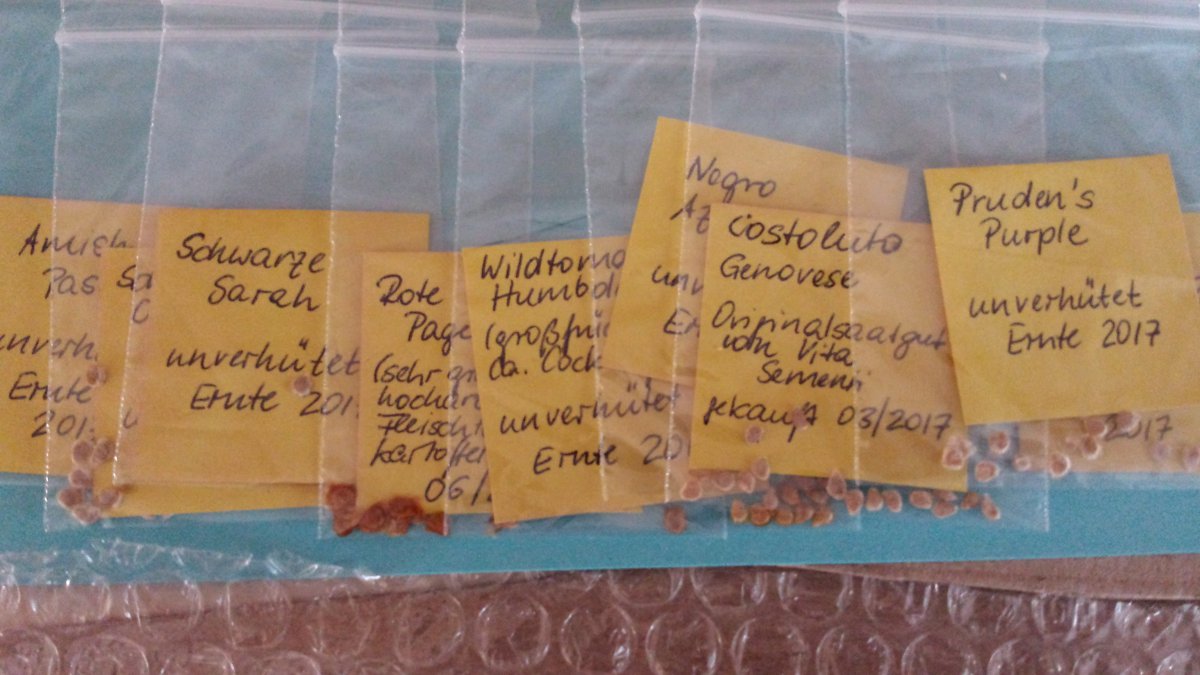 Amish
Pas
unverh.
Ernte
201
Sa
C
Schwarze
Sarah
unverhütet
Ernte 201
Rote
Page
(sehr gr
hochar
Fleisch
kartoffel
06/
Wildtoma
Humbol
(großfrü
ca. Cock
unverhütet
Ernte 20
Negro
Az
unv
Er
Costoluto
Genovese
Originalsaatgut
von Vita
Sementi
gekauft 03/2017
Pruden's
Purple
unverhütet
Ernte 2017
2017